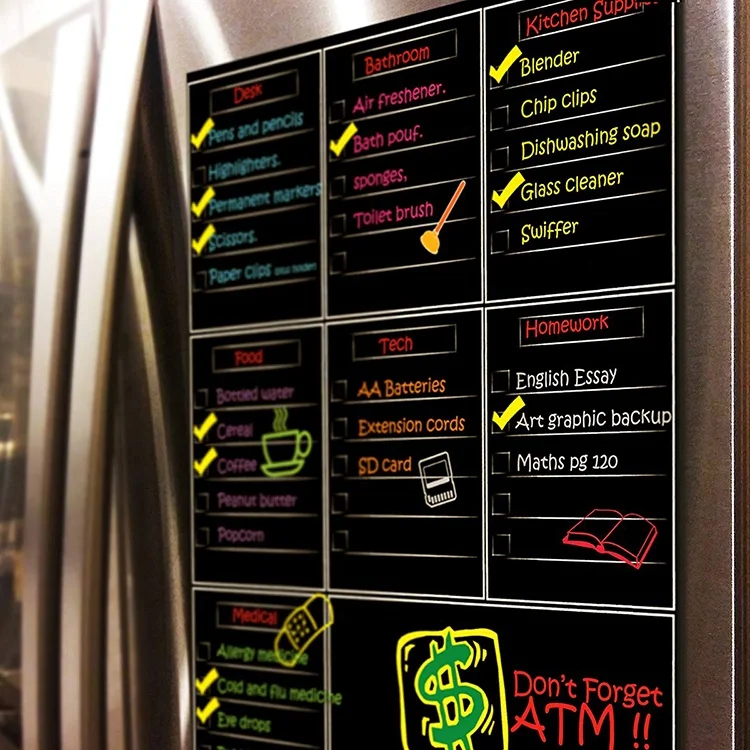 Desk
Pens and pencils
Highlighters.
Permanent markers
Scissors.
Paper clips
Bathroom
Air freshener.
Bath pouf.
sponges,
Toilet brush
Kitchen
Blender
Chip clips
Dishwashing soap
Glass cleaner
Swiffer
Food
Bottled water
Cereal
Coffee
Peanut butter
Popcorn
Tech
AA Batteries
Extension cords
SD card
Homework
English Essay
Art graphic backup
Maths pg 120
Medical
Allergy medicine
Cold and flu medicine
Eye drops
$
Don't Forget
ATM !!